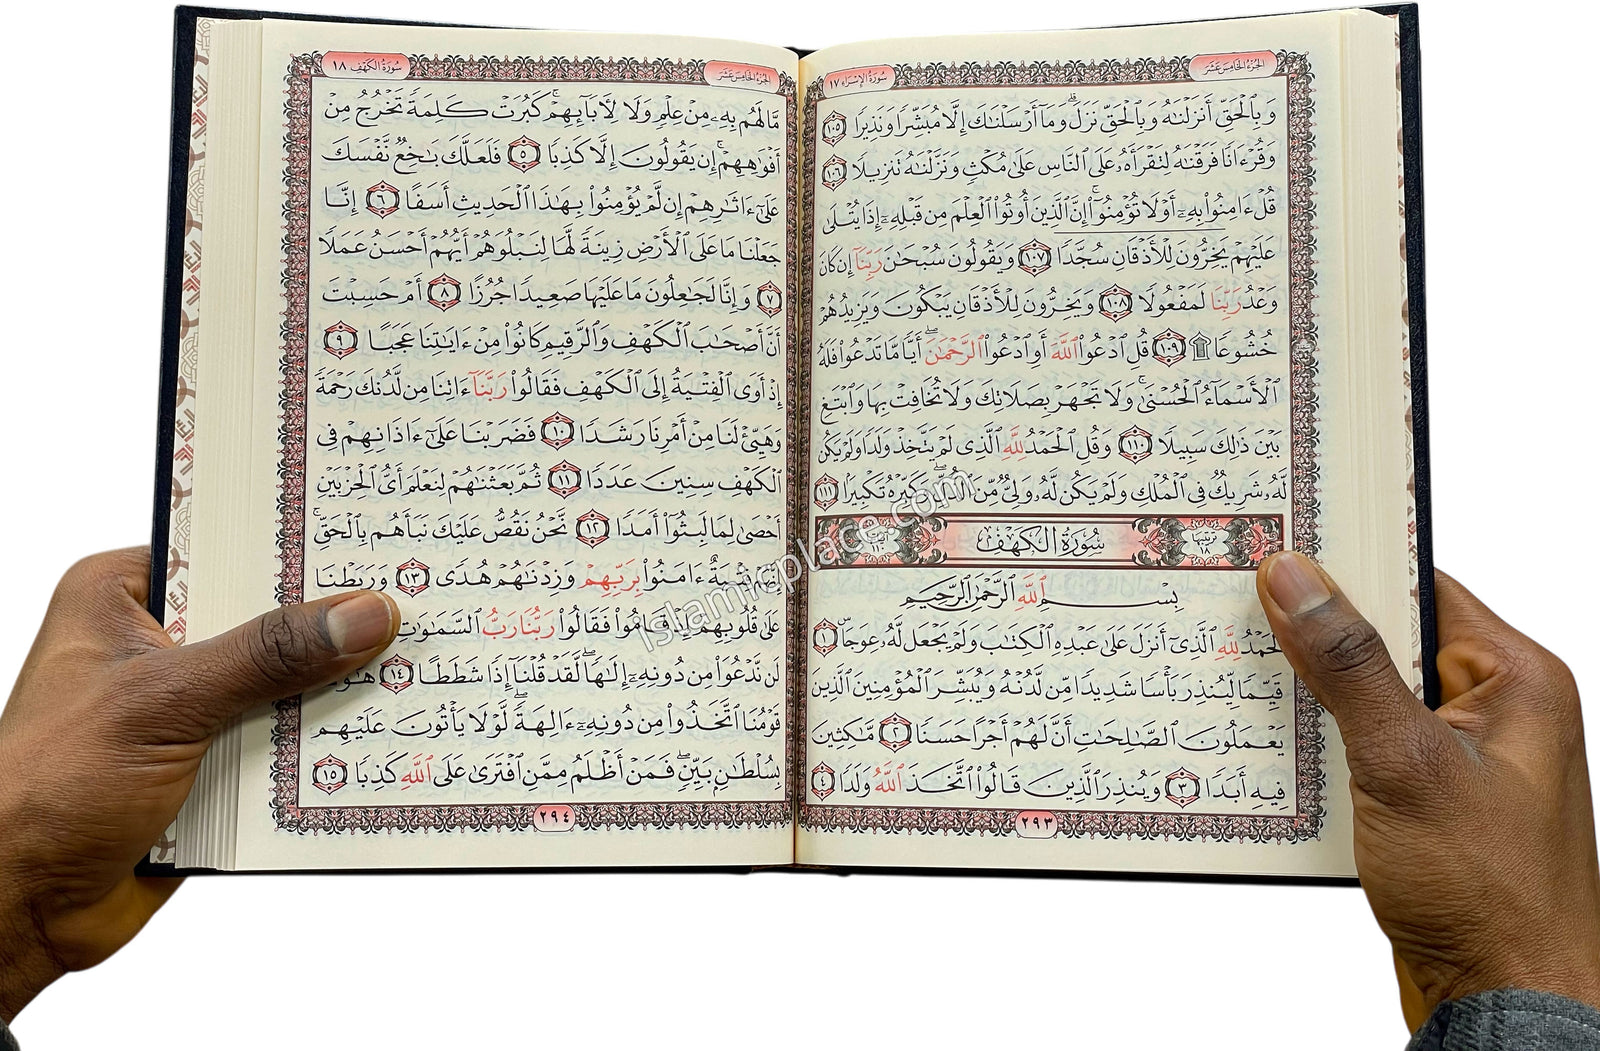 الجزء الخامس عشر
سورة الإسراء ١٧
وَبِالْحَقِّ أَنزَلْنَاهُ وَبِالْحَقِّ نَزَلَ ۗ وَمَا أَرْسَلْنَاكَ إِلَّا مُبَشِّرًا وَنَذِيرًا ١٠٥
وَقُرْءَانًا فَرَقْنَاهُ لِتَقْرَأَهُ عَلَى النَّاسِ عَلَىٰ مُكْثٍ وَنَزَّلْنَاهُ تَنزِيلًا ١٠٦
قُلْ ءَامِنُوا بِهِ أَوْ لَا تُؤْمِنُوا ۚ إِنَّ الَّذِينَ أُوتُوا الْعِلْمَ مِن قَبْلِهِ إِذَا يُتْلَىٰ
عَلَيْهِمْ يَخِرُّونَ لِلْأَذْقَانِ سُجَّدًا ١٠٧ وَيَقُولُونَ سُبْحَانَ رَبِّنَا إِن كَانَ
وَعْدُ رَبِّنَا لَمَفْعُولًا ١٠٨ وَيَخِرُّونَ لِلْأَذْقَانِ يَبْكُونَ وَيَزِيدُهُمْ
خُشُوعًا ۩ ١٠٩ قُلِ ادْعُوا اللَّهَ أَوِ ادْعُوا الرَّحْمَٰنَ ۖ أَيًّا مَّا تَدْعُوا فَلَهُ
الْأَسْمَاءُ الْحُسْنَىٰ ۚ وَلَا تَجْهَرْ بِصَلَاتِكَ وَلَا تُخَافِتْ بِهَا وَابْتَغِ
بَيْنَ ذَٰلِكَ سَبِيلًا ١١٠ وَقُلِ الْحَمْدُ لِلَّهِ الَّذِي لَمْ يَتَّخِذْ وَلَدًا وَلَمْ يَكُن
لَّهُ شَرِيكٌ فِي الْمُلْكِ وَلَمْ يَكُن لَّهُ وَلِيٌّ مِّنَ الذُّلِّ ۖ وَكَبِّرْهُ تَكْبِيرًا ١١١
ترتيبها ١٨ سُورَةُ الكَهْفِ
بِسْمِ اللَّهِ الرَّحْمَٰنِ الرَّحِيمِ
الْحَمْدُ لِلَّهِ الَّذِي أَنزَلَ عَلَىٰ عَبْدِهِ الْكِتَابَ وَلَمْ يَجْعَل لَّهُ عِوَجًا ١
قَيِّمًا لِّيُنذِرَ بَأْسًا شَدِيدًا مِّن لَّدُنْهُ وَيُبَشِّرَ الْمُؤْمِنِينَ الَّذِينَ
يَعْمَلُونَ الصَّالِحَاتِ أَنَّ لَهُمْ أَجْرًا حَسَنًا ٢ مَّاكِثِينَ
فِيهِ أَبَدًا ٣ وَيُنذِرَ الَّذِينَ قَالُوا اتَّخَذَ اللَّهُ وَلَدًا ٤
٢٩٣
الجزء الخامس عشر
سورة الكهف ١٨
مَّا لَهُم بِهِ مِنْ عِلْمٍ وَلَا لِآبَائِهِمْ ۚ كَبُرَتْ كَلِمَةً تَخْرُجُ مِنْ
أَفْوَاهِهِمْ ۚ إِن يَقُولُونَ إِلَّا كَذِبًا ٥ فَلَعَلَّكَ بَاخِعٌ نَّفْسَكَ
عَلَىٰ ءَاثَارِهِمْ إِن لَّمْ يُؤْمِنُوا بِهَٰذَا الْحَدِيثِ أَسَفًا ٦ إِنَّا
جَعَلْنَا مَا عَلَى الْأَرْضِ زِينَةً لَّهَا لِنَبْلُوَهُمْ أَيُّهُمْ أَحْسَنُ عَمَلًا
٧ وَإِنَّا لَجَاعِلُونَ مَا عَلَيْهَا صَعِيدًا جُرُزًا ٨ أَمْ حَسِبْتَ
أَنَّ أَصْحَابَ الْكَهْفِ وَالرَّقِيمِ كَانُوا مِنْ ءَايَاتِنَا عَجَبًا ٩
إِذْ أَوَى الْفِتْيَةُ إِلَى الْكَهْفِ فَقَالُوا رَبَّنَا ءَاتِنَا مِن لَّدُنكَ رَحْمَةً
وَهَيِّئْ لَنَا مِنْ أَمْرِنَا رَشَدًا ١٠ فَضَرَبْنَا عَلَىٰ ءَاذَانِهِمْ فِي
الْكَهْفِ سِنِينَ عَدَدًا ١١ ثُمَّ بَعَثْنَاهُمْ لِنَعْلَمَ أَيُّ الْحِزْبَيْنِ
أَحْصَىٰ لِمَا لَبِثُوا أَمَدًا ١٢ نَّحْنُ نَقُصُّ عَلَيْكَ نَبَأَهُم بِالْحَقِّ ۚ
إِنَّهُمْ فِتْيَةٌ ءَامَنُوا بِرَبِّهِمْ وَزِدْنَاهُمْ هُدًى ١٣ وَرَبَطْنَا
عَلَىٰ قُلُوبِهِمْ إِذْ قَامُوا فَقَالُوا رَبُّنَا رَبُّ السَّمَاوَاتِ
لَن نَّدْعُوَا مِن دُونِهِ إِلَٰهًا ۖ لَّقَدْ قُلْنَا إِذًا شَطَطًا ١٤ هَٰؤُلَاءِ
قَوْمُنَا اتَّخَذُوا مِن دُونِهِ ءَالِهَةً ۖ لَّوْلَا يَأْتُونَ عَلَيْهِم
بِسُلْطَانٍ بَيِّنٍ ۖ فَمَنْ أَظْلَمُ مِمَّنِ افْتَرَىٰ عَلَى اللَّهِ كَذِبًا ١٥
٢٩٤
islamicplace.com